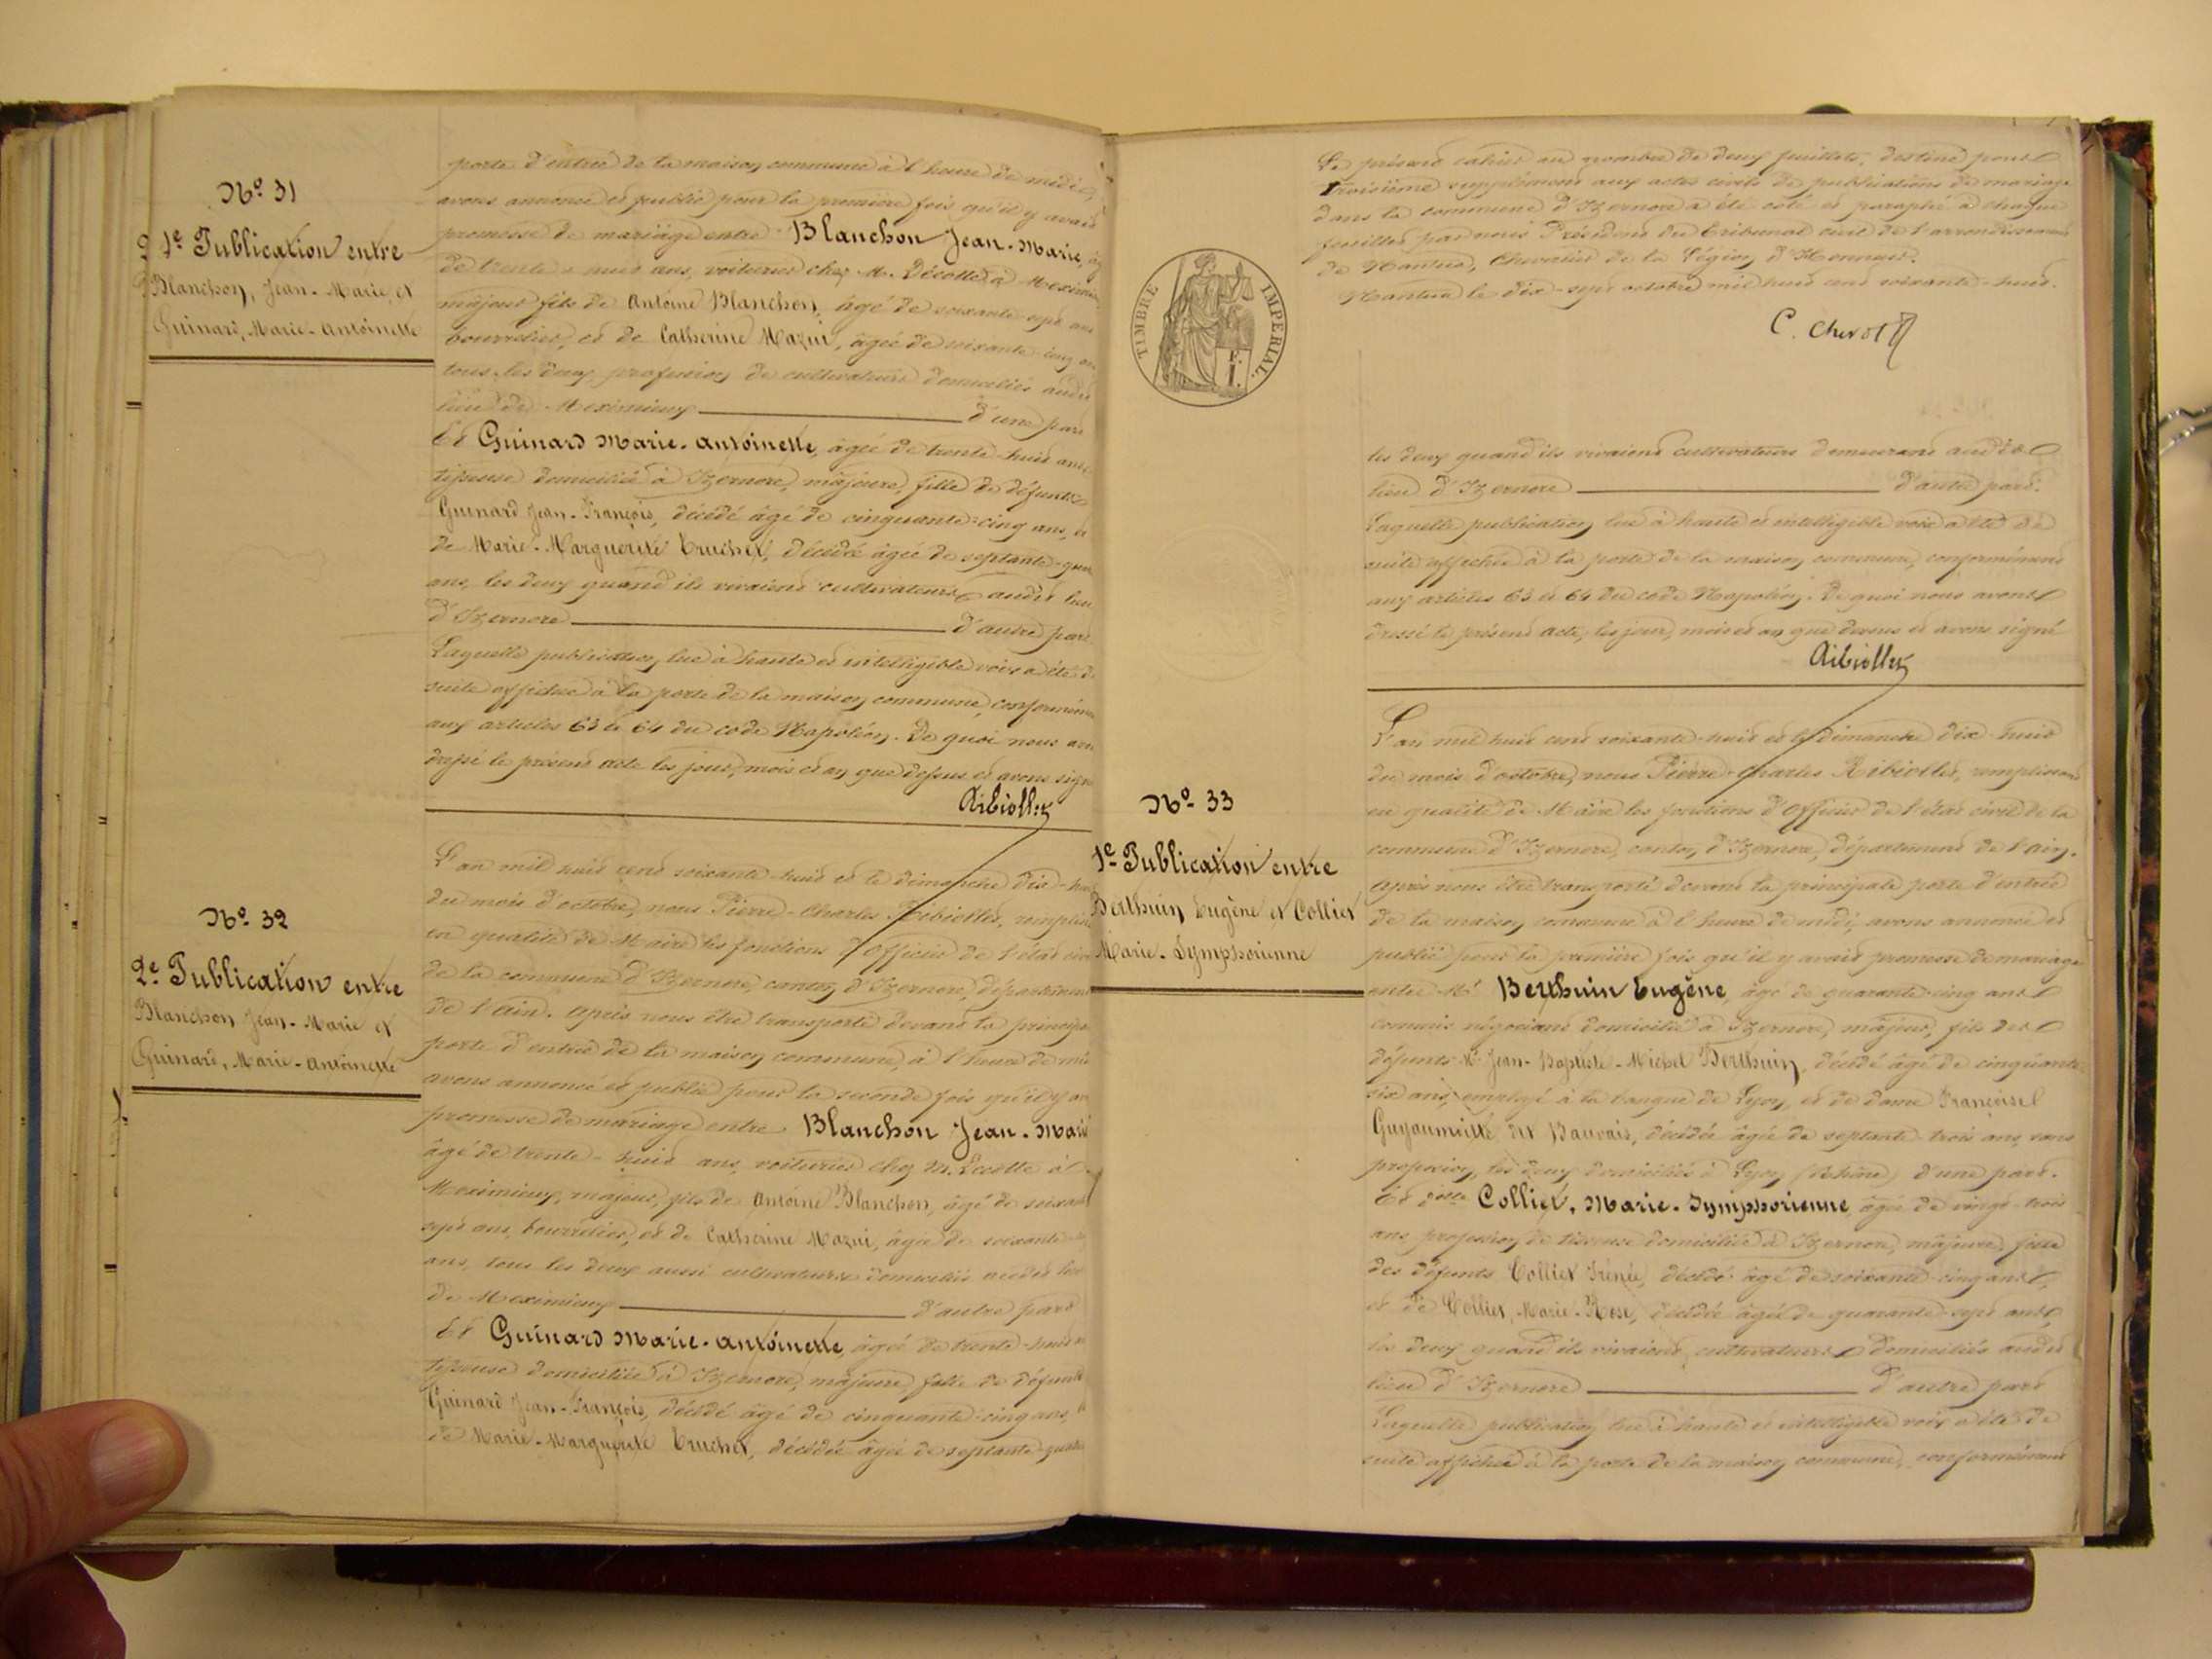 N.º 31
1e Publication entre
Blanchon, Jean-Marie, et
Guinard, Marie-Antoinette
porte d'entrée de la maison commune à l'heure de midi,
avons annoncé et publié pour la première fois qu'il y avait
promesse de mariage entre Blanchon Jean-Marie,
de trente-huit ans, voiturier chez M.
majeur fils de Antoine Blanchon, âgé de soixante-sept ans
bourrelier, et de Catherine Mazui, âgée de soixante-cinq
tous les deux profession de cultivateurs domiciliés audit
lieu de Meximieux d'une part
Et Guinard Marie-Antoinette, âgée de trente-huit ans
tisseuse domiciliée à Izernore, majeure, fille de défunts
Guinard Jean-François, décédé âgé de cinquante-cinq ans, et
de Marie-Marguerite Truchet, décédée âgée de septante-
ans, les deux quand ils vivaient cultivateurs audit lieu
d'Izernore d'autre part
Laquelle publication lue à haute et intelligible voix a été de
suite affichée à la porte de la maison commune,
aux articles 63 et 64 du code Napoléon. De quoi nous
dressé le présent acte les jour, mois et an que dessus et avons signé
Ribiollet
N.º 32
2e Publication entre
Blanchon Jean-Marie et
Guinard, Marie-Antoinette
L'an mil huit cent soixante-huit et le dimanche dix-huit
du mois d'octobre, nous Pierre-Charles Ribiollet,
en qualité de Maire les fonctions d'Officier de l'état civil
de la commune d'Izernore, canton d'Izernore, département
de l'Ain. Après nous être transporté devant la
porte d'entrée de la maison commune, à l'heure de
avons annoncé et publié pour la seconde fois qu'il y
promesse de mariage entre Blanchon Jean-Marie
âgé de trente-huit ans, voiturier chez M. à
Meximieux, majeur, fils de Antoine Blanchon, âgé de
sept ans, bourrelier, et de Catherine Mazui, âgée de soixante
ans, tous les deux aussi cultivateurs domiciliés audit lieu
de Meximieux d'autre part
Et Guinard Marie-Antoinette, âgée de trente-huit
tisseuse domiciliée à Izernore, majeure, fille de défunts
Guinard Jean-François, décédé âgé de cinquante-cinq ans,
de Marie-Marguerite Truchet, décédée âgée de septante-
Le présent cahier au nombre de deux feuillets, destiné pour
troisième supplément aux actes civils de publications de mariage
dans la commune d'Izernore a été coté et paraphé à chaque
feuillet par nous Président du tribunal civil de l'arrondissement
de Nantua, Chevalier de la Légion d'Honneur.
Nantua le dix-sept octobre mil huit cent soixante-huit.
C. Chevot
TIMBRE IMPERIAL.
les deux quand ils vivaient cultivateurs demeurant audit
lieu d'Izernore d'autre part.
Laquelle publication lue à haute et intelligible voix a été de
suite affichée à la porte de la maison commune, conformément
aux articles 63 et 64 du code Napoléon. De quoi nous avons
dressé le présent acte, les jour, mois et an que dessus et avons signé
Ribiollet
N.º 33
1e Publication entre
Berthuin Eugène et Collier
Marie-Symphorienne
L'an mil huit cent soixante-huit et le dimanche dix-huit
du mois d'octobre, nous Pierre-Charles Ribiollet, remplissant
en qualité de Maire les fonctions d'Officier de l'état civil de la
commune d'Izernore, canton d'Izernore, département de l'Ain.
Après nous être transporté devant la principale porte d'entrée
de la maison commune à l'heure de midi, avons annoncé et
publié pour la première fois qu'il y avait promesse de mariage
entre Mr Berthuin Eugène, âgé de quarante-cinq ans
commis négociant domicilié à Izernore, majeur, fils des
défunts Mr Jean-Baptiste-Michel Berthuin, décédé âgé de cinquante
six ans, employé à la banque de Lyon, et de dame Françoise
dit Bauvais, décédée âgée de septante-trois ans, sans
profession, les deux domiciliés à Lyon (Rhône) d'une part.
Et Delle Collier, Marie-Symphorienne, âgée de vingt-trois
ans, profession de tisseuse domiciliée à Izernore, majeure, fille
des défunts Collier Irénée, décédé âgé de soixante-cinq ans,
et de Collier, Marie-Rose, décédée âgée de quarante-sept ans,
les deux quand ils vivaient, cultivateurs domiciliés audit
lieu d'Izernore d'autre part
Laquelle publication lue à haute et intelligible voix a été de
suite affichée à la porte de la maison commune, conformément